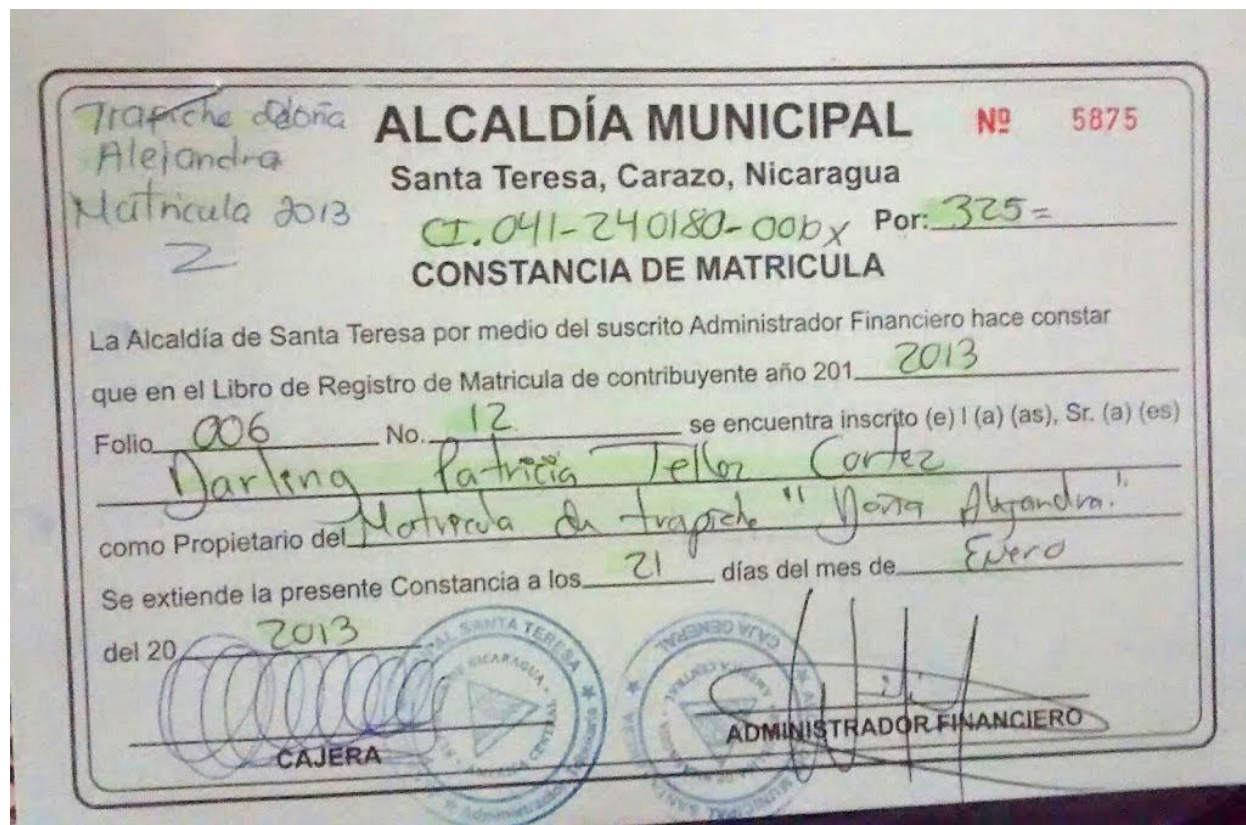 Trapiche doña
Alejandra
Matricula 2013
2
ALCALDÍA MUNICIPAL
Nº 5875
Santa Teresa, Carazo, Nicaragua
CI. 041-240180-000x Por: 325=
CONSTANCIA DE MATRICULA
La Alcaldía de Santa Teresa por medio del suscrito Administrador Financiero hace constar
que en el Libro de Registro de Matricula de contribuyente año 201 2013
Folio 006 No. 12 se encuentra inscrito (e) l (a) (as), Sr. (a) (es)
Darling Patricia Tellez Cortez
como Propietario del Matricula de trapiche "Doña Alejandra."
Se extiende la presente Constancia a los 21 días del mes de Enero
del 20 2013
CAJERA
ADMINISTRADOR FINANCIERO
SANTA TERESA
NICARAGUA
CAJA GENERAL